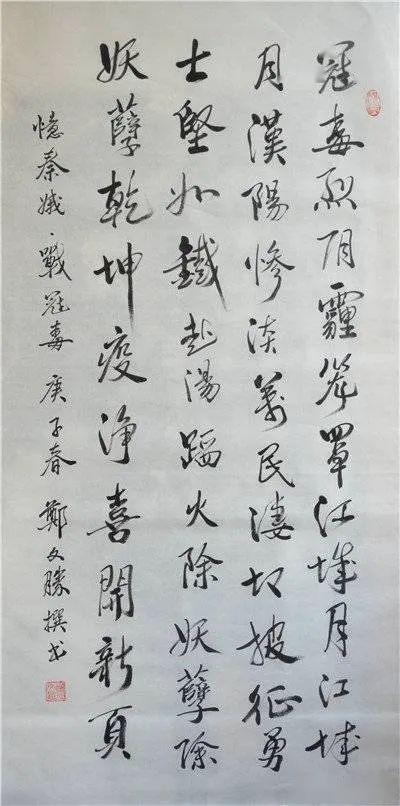 冠毒烈阴霾笼罩江城月江城
月漢陽惨淡萬民凄切披征勇
士堅如鐵赴湯蹈火除妖孽除
妖孽乾坤疫净喜開新頁
憶秦娥·戰冠毒 庚子春 鄭文勝撰书